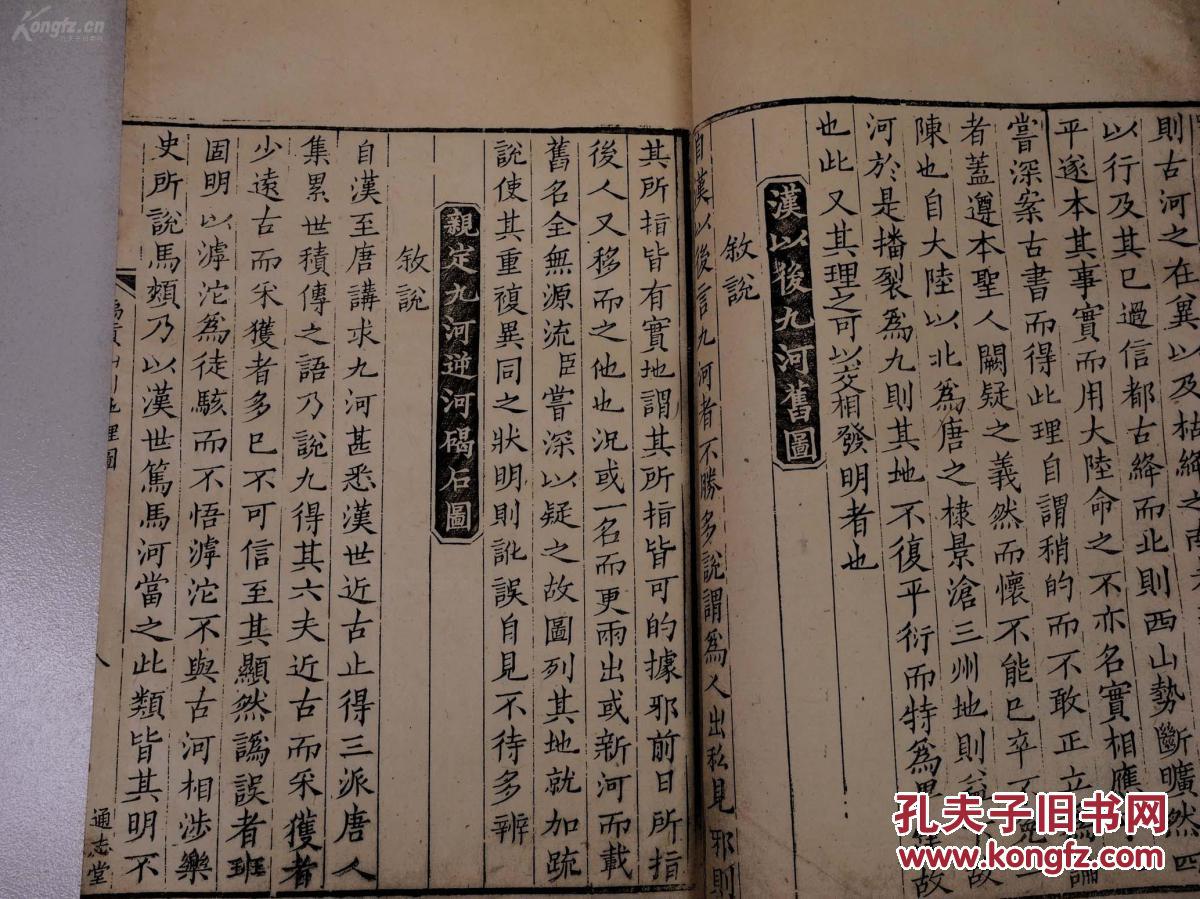 則古河之在冀以及枯絳之南
以行及其已過信都古絳而北則西山勢斷曠然四
平遂本其事實而用大陸命之不亦名實相應
嘗深案古書而得此理自謂稍的而不敢正立爲論
者蓋遵本聖人闕疑之義然而懷不能已卒不
陳也自大陸以北爲唐之棣景滄三州地則
河於是播裂爲九則其地不復平衍而特爲
也此又其理之可以交相發明者也
漢以後九河舊圖
敘說
自漢以後言九河者不勝多說謂爲人出私見邪則
其所指皆有實地謂其所指皆可的據邪前日所指
後人又移而之他也況或一名而更兩出或新河而載
舊名全無源流臣嘗深以疑之故圖列其地就加疏
說使其重復異同之狀明則訛誤自見不待多辨
親定九河逆河碣石圖
敘說
自漢至唐講求九河甚悉漢世近古止得三派唐人
集累世積傳之語乃說九得其六夫近古而采獲者
少遠古而采獲者多已不可信至其顯然譌誤者班
固明以滹沱爲徒駭而不悟滹沱不與古河相涉樂
史所說馬頰乃以漢世篤馬河當之此類皆其明不
禹貢山川地理圖
八
通志堂
Kongfz.cn
孔夫子旧书网
孔夫子旧书网
www.kongfz.com